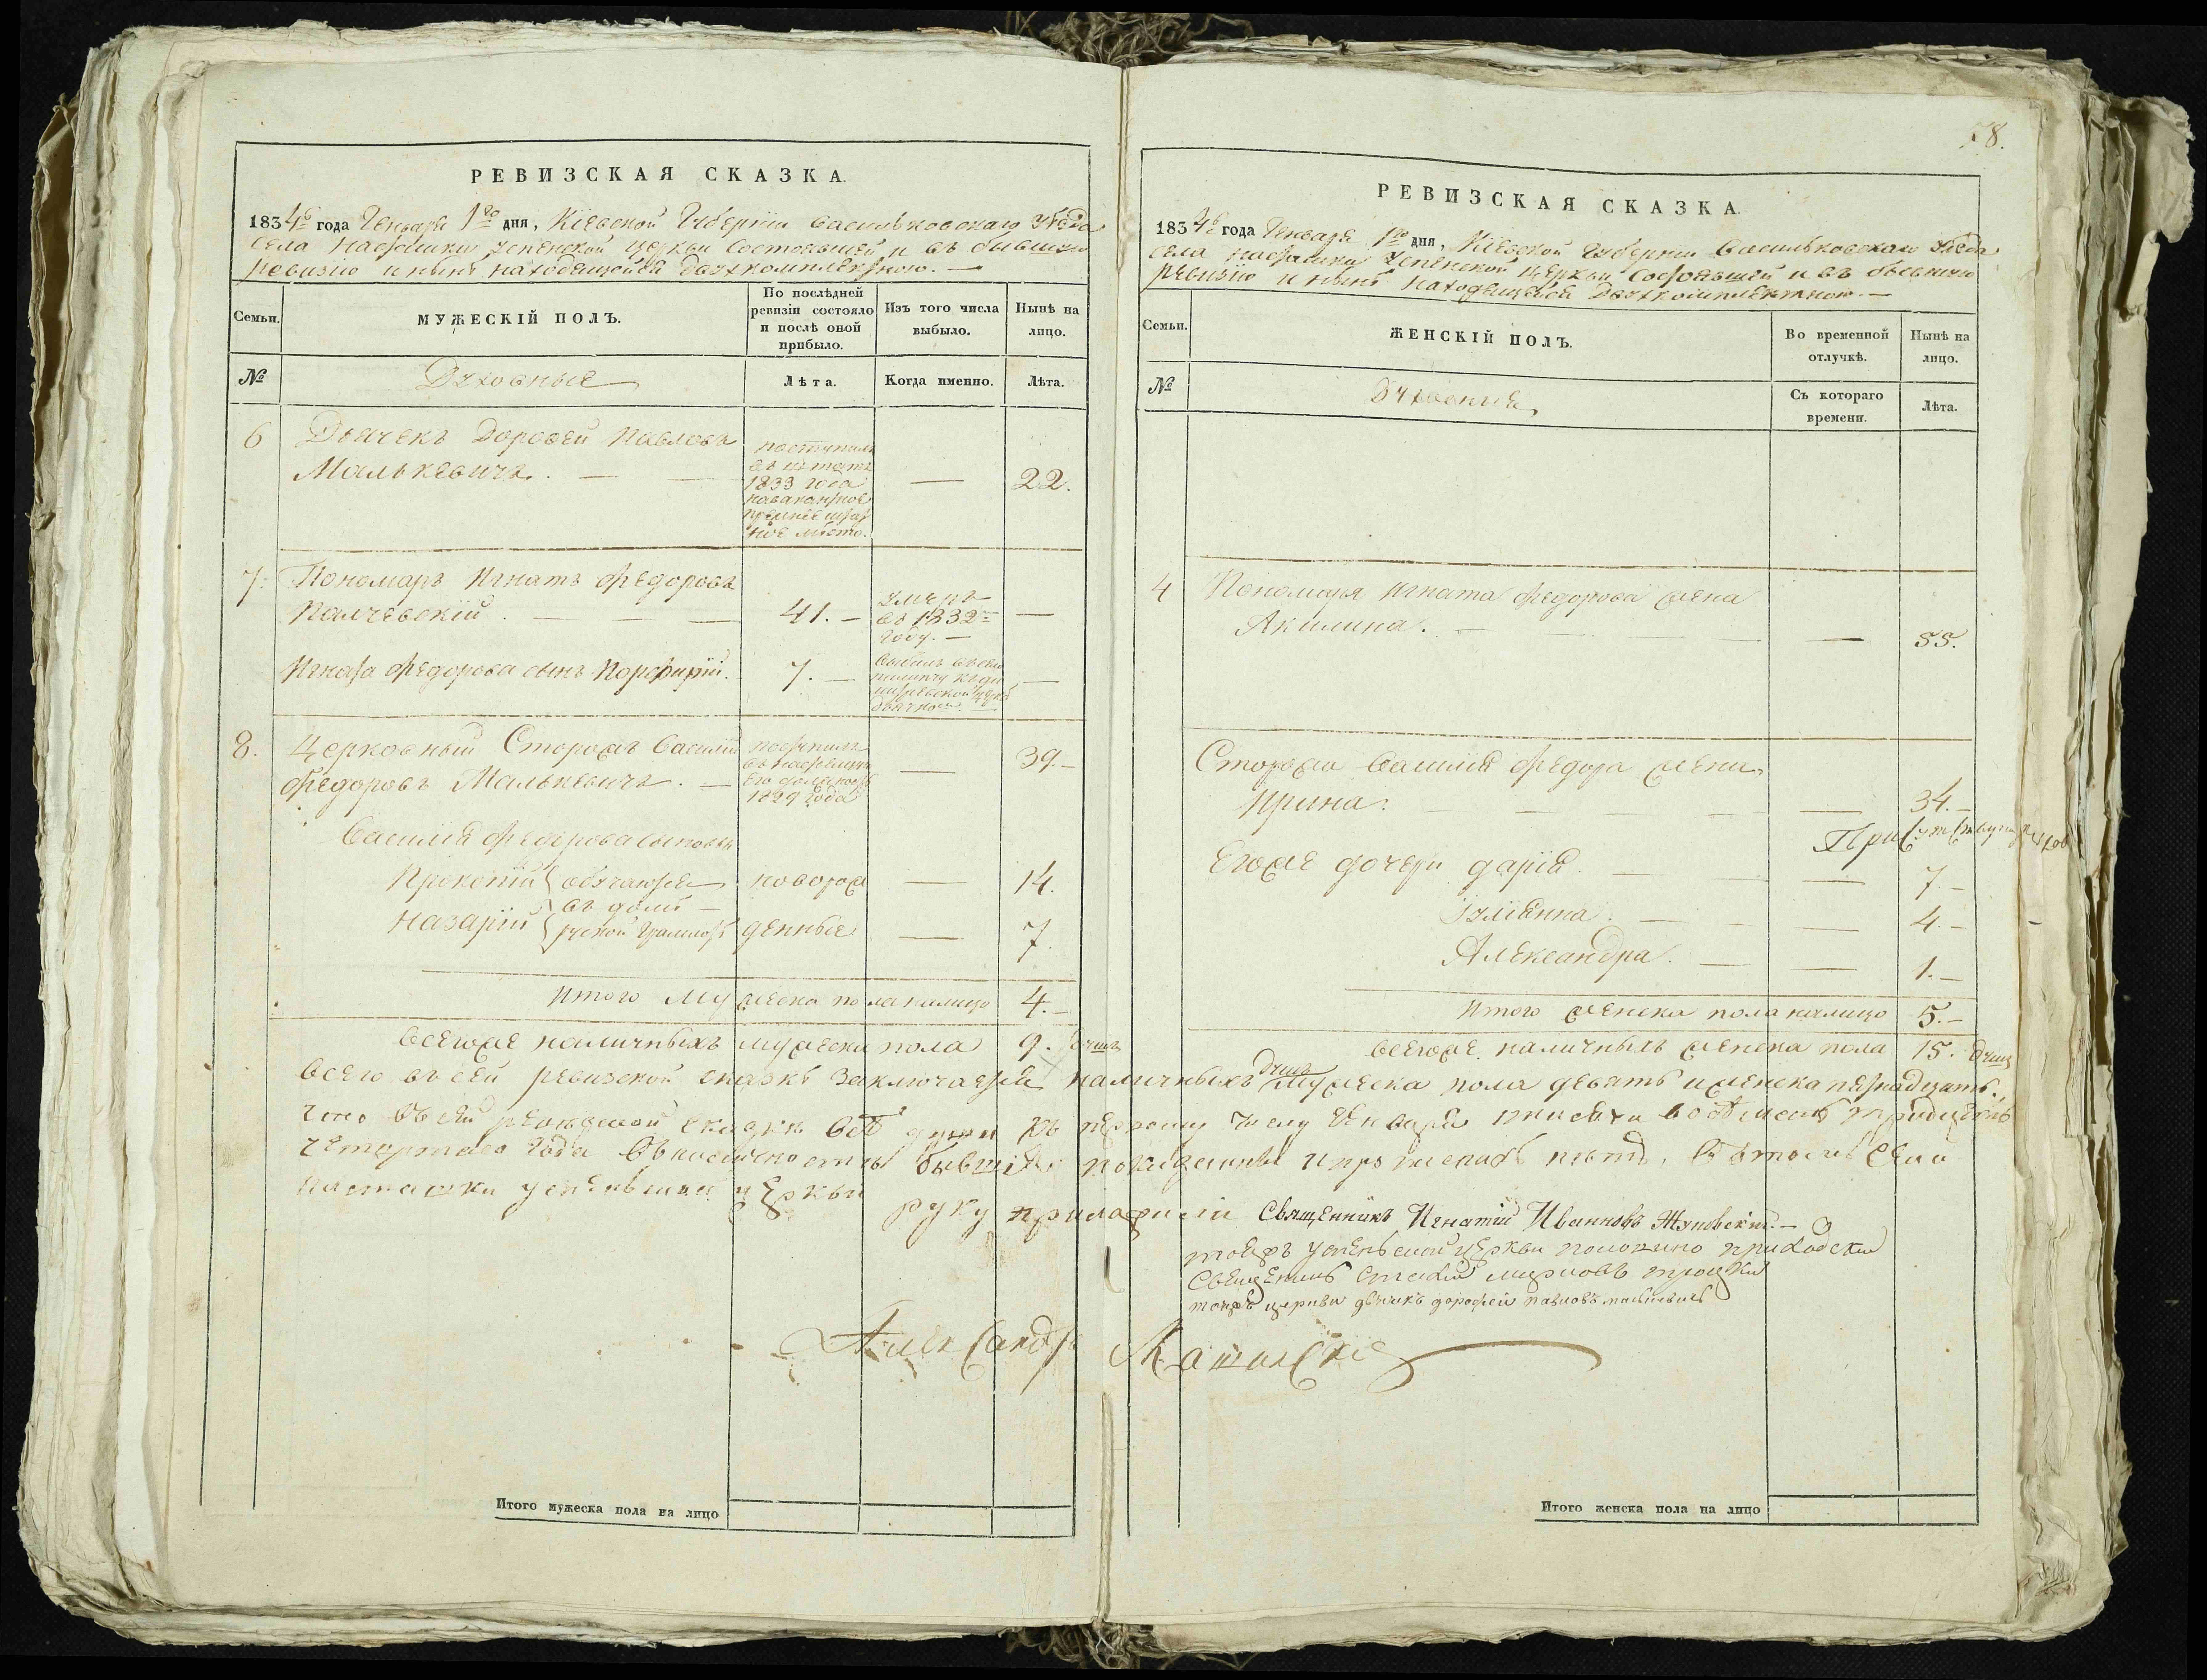 78.
РЕВИЗСКАЯ СКАЗКА.
1834го года Генваря 1го дня, Кіевской Губерніи Васильковскаго Уѣзда
села Насташки Успенской церкви состоявшей и въ бывшую
ревизію и нынѣ находящейся двухкомплектною. —
Семьи.
МУЖЕСКІЙ ПОЛЪ.
По послѣдней
ревизіи состояло
и послѣ оной
прибыло.
Изъ того числа
выбыло.
Нынѣ на
лицо.
№
Духовные
Лѣта.
Когда именно.
Лѣта.
6 Дьячекъ Дорофей Павловъ
Малькевичъ. — — 22.
поступилъ
въ штатъ
1833 года
ное мѣсто.
7. Пономарь Игнатъ Федоровъ
Палчевскій. — — — 41. — —
умеръ
въ 1832=
году. —
Игната Федорова сынъ Порфирій. 7. — —
8. Церковный Сторожъ Василій
Федоровъ Малькевичъ. — — 39. —
поступилъ
1829 года
Василія Федорова сыновья
Прокопій обучаются новорож — 14.
въ домѣ —
Назарій руской грамотѣ денные — 7.
Итого мужеска пола налицо 4. —
всегоже наличныхъ мужеска пола 9. душъ
РЕВИЗСКАЯ СКАЗКА.
1834го года Генваря 1го дня, Кіевской Губерніи Васильковскаго Уѣзда
села Насташки Успенской церкви состоявшей и въ бывшую
ревизію и нынѣ находящейся двухкомплектною. —
Семьи.
ЖЕНСКІЙ ПОЛЪ.
Во временной
отлучкѣ.
Нынѣ на
лицо.
№
Духовныя
Съ котораго
времени.
Лѣта.
4 Пономаря Игната Федорова жена
Акилина. — — — — 55.
Сторожа Василія Федора жена
Ирина. — — — — 34. —
Егоже дочери Дарія. — — — 7. —
Уліянна. — — — 4. —
Александра. — — 1. —
Итого женска пола налицо 5. —
всегоже наличныхъ женска пола 15. душъ
Всего въ сей ревизской сказкѣ заключается наличныхъ душъ мужеска пола девять и женска пятнадцать.
Что въ сей ревизской сказкѣ всѣ души къ первому числу Генваря тысяча восѣмсотъ тридцать
четвертаго года въ наличности бывшіе показанны и пропи нѣтъ, въ томъ села
Насташки Успенской церкви руку приложили Священникъ Игнатій Иванновъ Жуковскій. —
тоежъ Успенской церкви приходскій
Священикъ
тоежъ церкви дьячокъ дорофей павловъ малькевичъ
Александръ
Итого мужеска пола на лицо
Итого женска пола на лицо